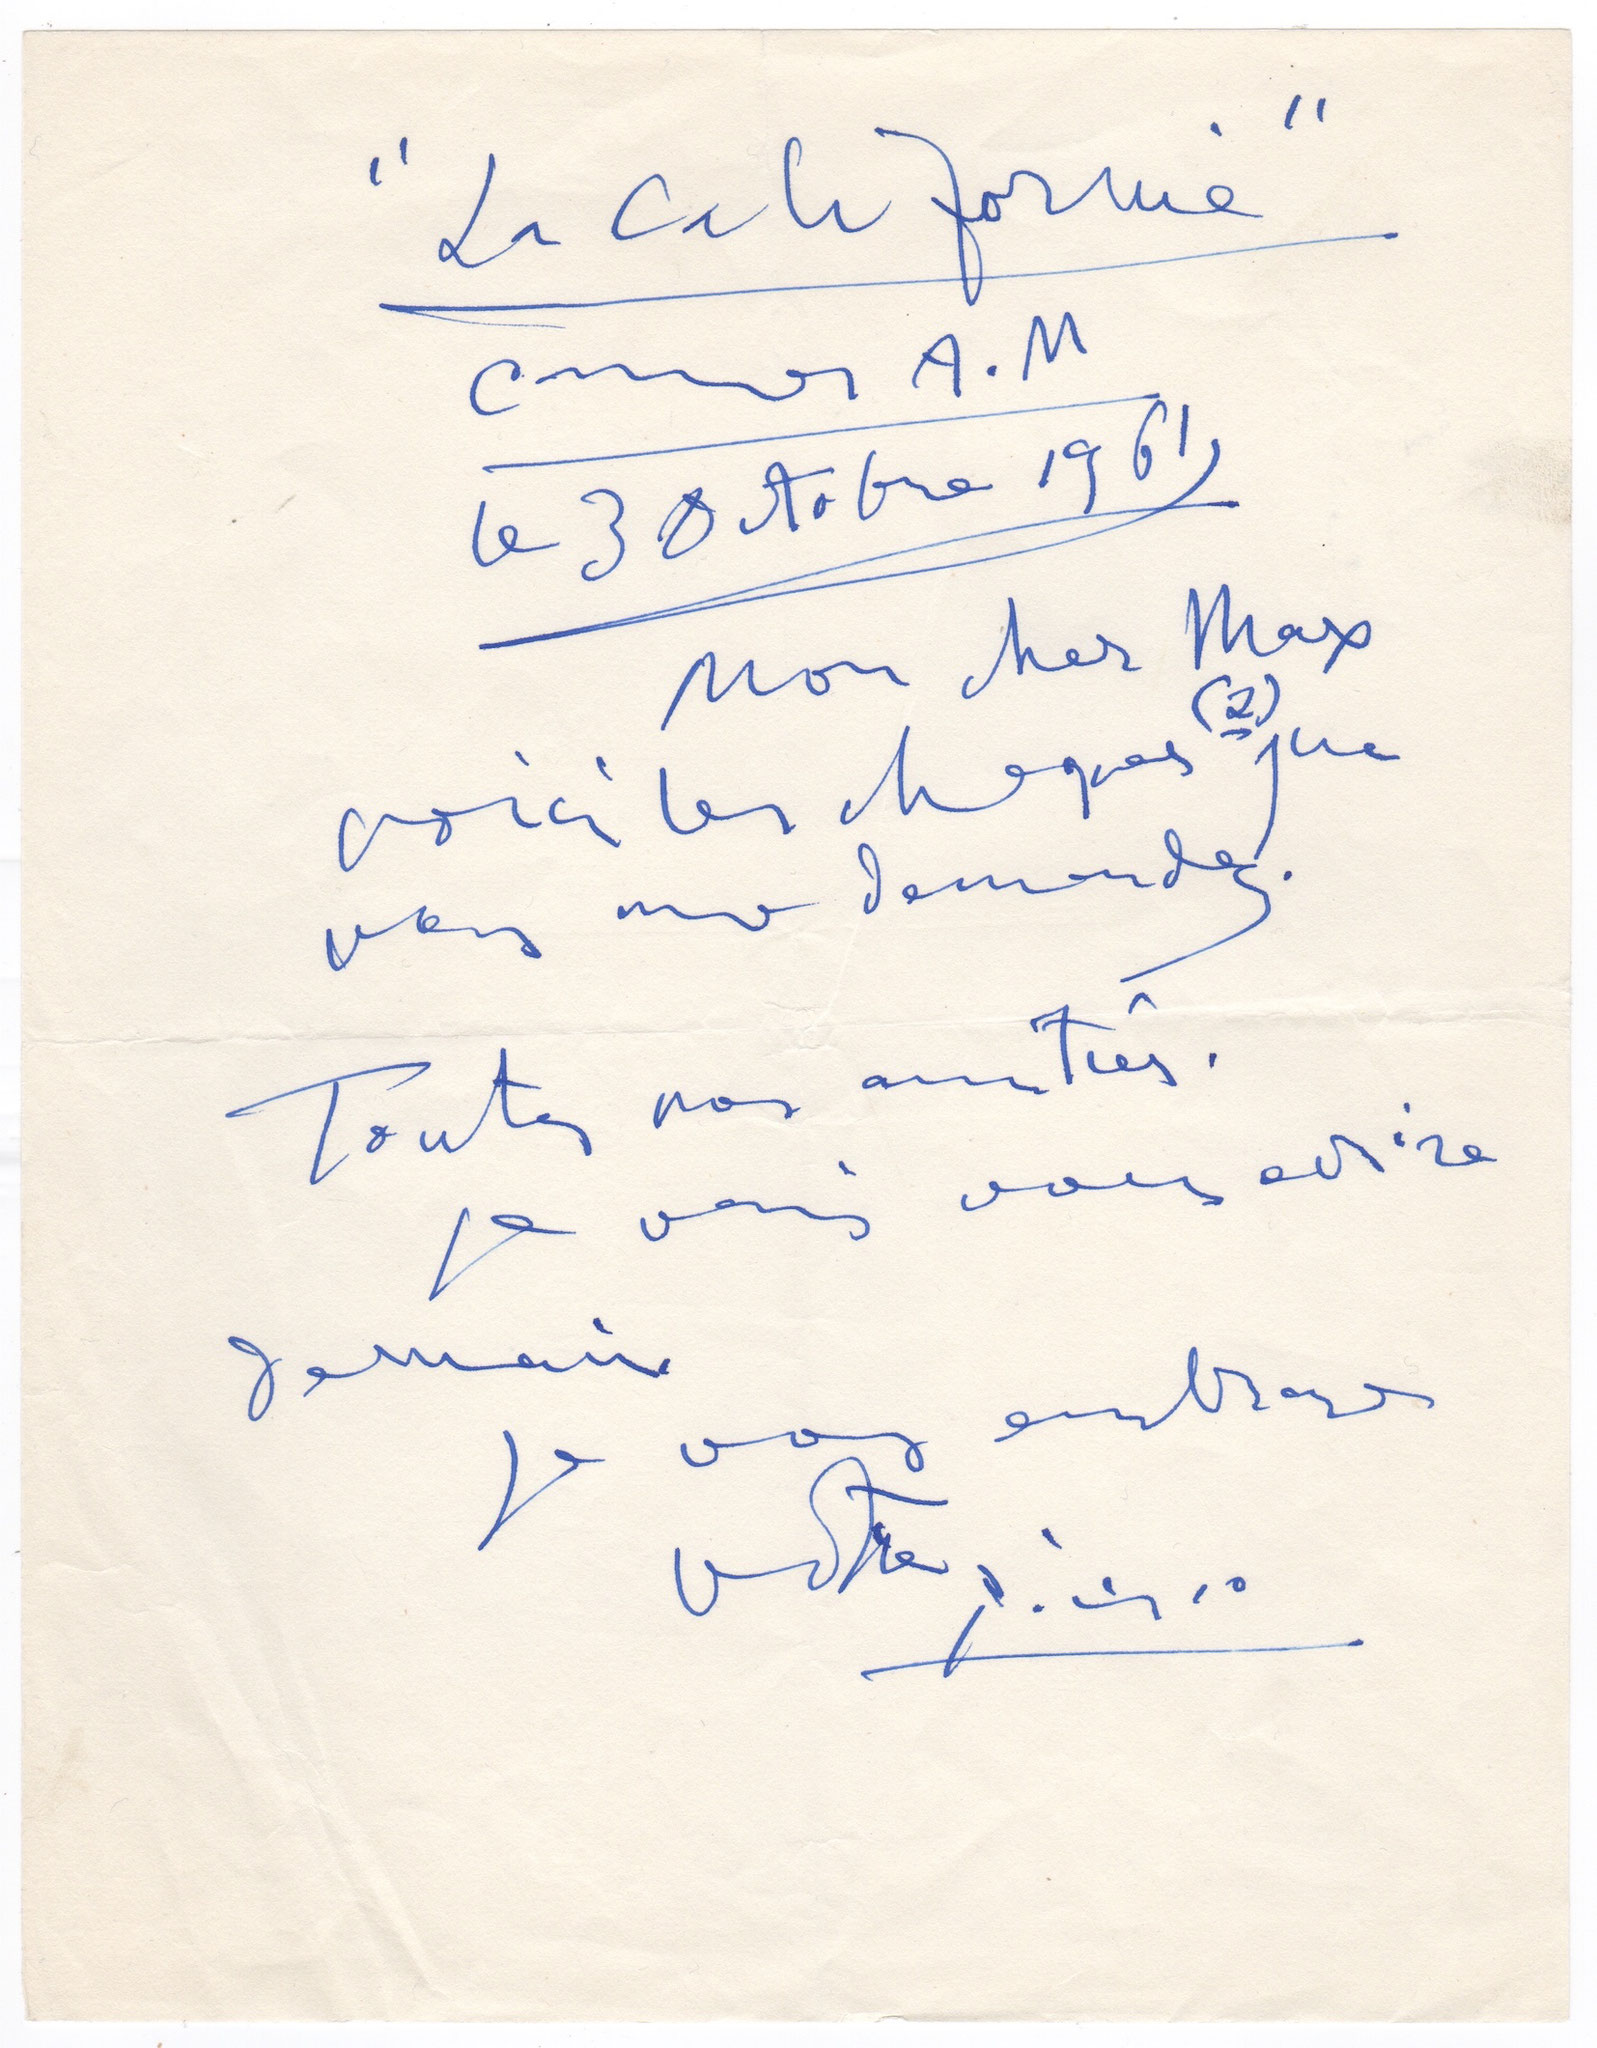 "La Californie"
Cannes A.M
le 3 Octobre 1961
Mon cher Max
voici les cheques (2) que
vous me demandez.
Toutes nos amitiês.
je vais vous ecrire
demain
je vous embrasse
votre Picasso